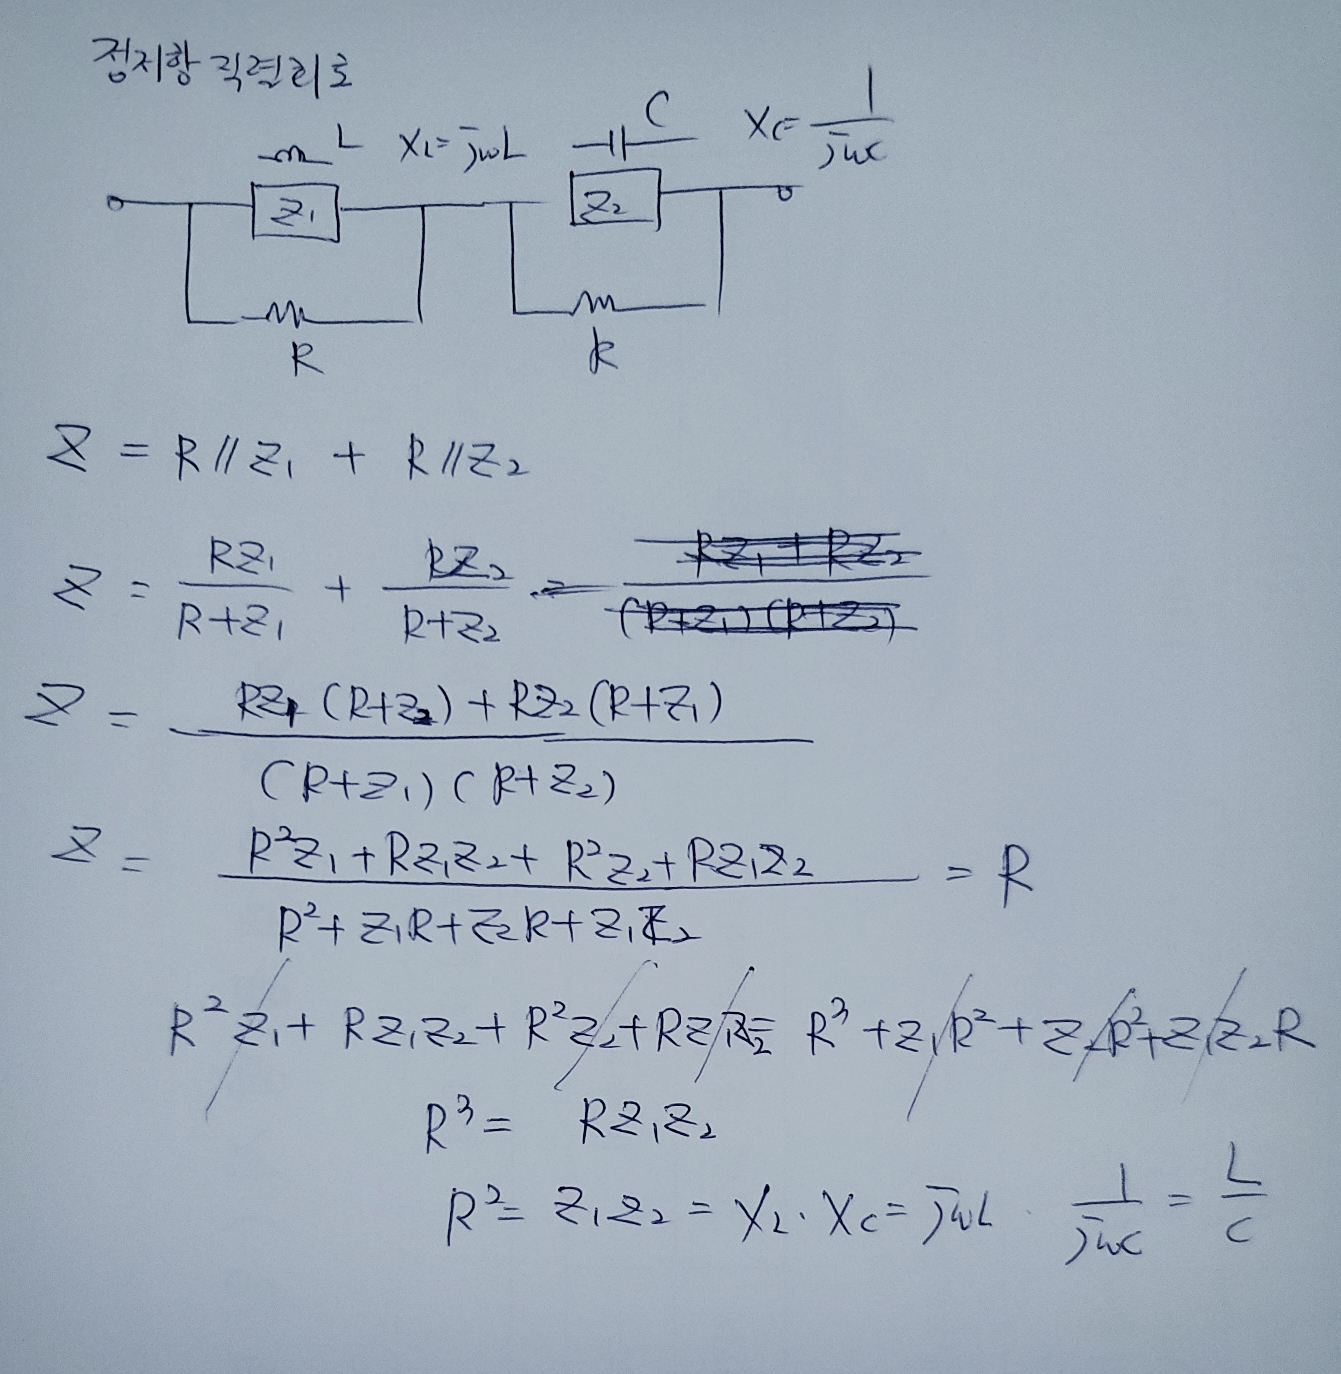 정저항 직렬회로
L X_L = jωL C X_C = 1/jωC
Z₁ Z₂
R R
Z = R // Z₁ + R // Z₂
Z = RZ₁/(R+Z₁) + RZ₂/(R+Z₂) = (RZ₁ + RZ₂)/((R+Z₁)(R+Z₂))
Z = (RZ₁(R+Z₂) + RZ₂(R+Z₁))/((R+Z₁)(R+Z₂))
Z = (R²Z₁ + RZ₁Z₂ + R²Z₂ + RZ₁Z₂)/(R² + Z₁R + Z₂R + Z₁Z₂) = R
R²Z₁ + RZ₁Z₂ + R²Z₂ + RZ₁Z₂ = R³ + Z₁R² + Z₂R² + Z₁Z₂R
R³ = RZ₁Z₂
R² = Z₁Z₂ = X_L · X_C = jωL · 1/jωC = L/C